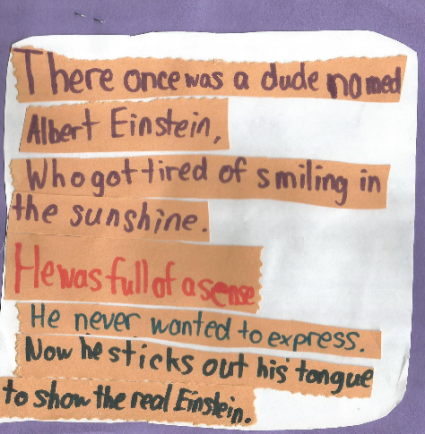 There once was a dude named
Albert Einstein,
Who got tired of smiling in
the sunshine.
He was full of a sense
He never wanted to express.
Now he sticks out his tongue
to show the real Einstein.